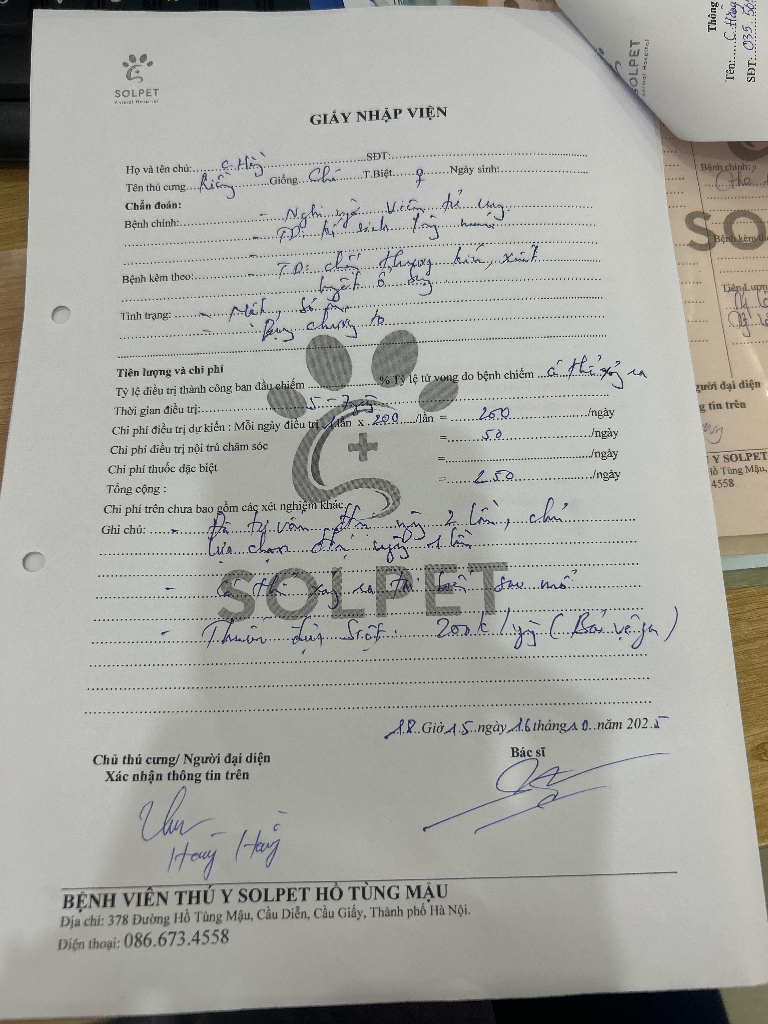 SOLPET
Animal Hospital
GIẤY NHẬP VIỆN
Họ và tên chủ: C. Hằng SĐT:
Tên thú cưng Riềng Giống Chó T.Biệt ♀ Ngày sinh:
Chẩn đoán:
Bệnh chính: - Nghi ngờ Viêm tử cung
- TD:
Bệnh kèm theo: - TD: chấn thương kín, xuất
huyết ổ bụng
Tình trạng: - Mệt,
- Bụng chướng to
Tiên lượng và chi phí
Tỷ lệ điều trị thành công ban đầu chiếm % Tỷ lệ tử vong do bệnh chiếm có thể xảy ra
Thời gian điều trị: 5-7 ngày
Chi phí điều trị dự kiến : Mỗi ngày điều trị 1 lần x 200 /lần = 200 /ngày
Chi phí điều trị nội trú chăm sóc = 50 /ngày
Chi phí thuốc đặc biệt = /ngày
Tổng cộng : = 250 /ngày
Chi phí trên chưa bao gồm các xét nghiệm khác
Ghi chú: - Đã tư vấn ngày 2 lần, chủ
lựa chọn ngày 1 lần
- Có thể xảy ra sau mổ
- Thuốc 200k/ngày (Bảo vệ gan)
SOLPET
18 Giờ 15 ngày 16 tháng 10 năm 2025
Chủ thú cưng/ Người đại diện
Xác nhận thông tin trên
Bác sĩ
Hằng
BỆNH VIỆN THÚ Y SOLPET HỒ TÙNG MẬU
Địa chỉ: 378 Đường Hồ Tùng Mậu, Cầu Diễn, Cầu Giấy, Thành phố Hà Nội.
Điện thoại: 086.673.4558
SOLPET
Animal Hospital
Thông
Tên: C Hằng
SĐT: 035
Bệnh chính:
SO
Bệnh kèm th
Tiên lượn
gười đại diện
g tin trên
Y SOLPET
Hồ Tùng Mậu,
4558